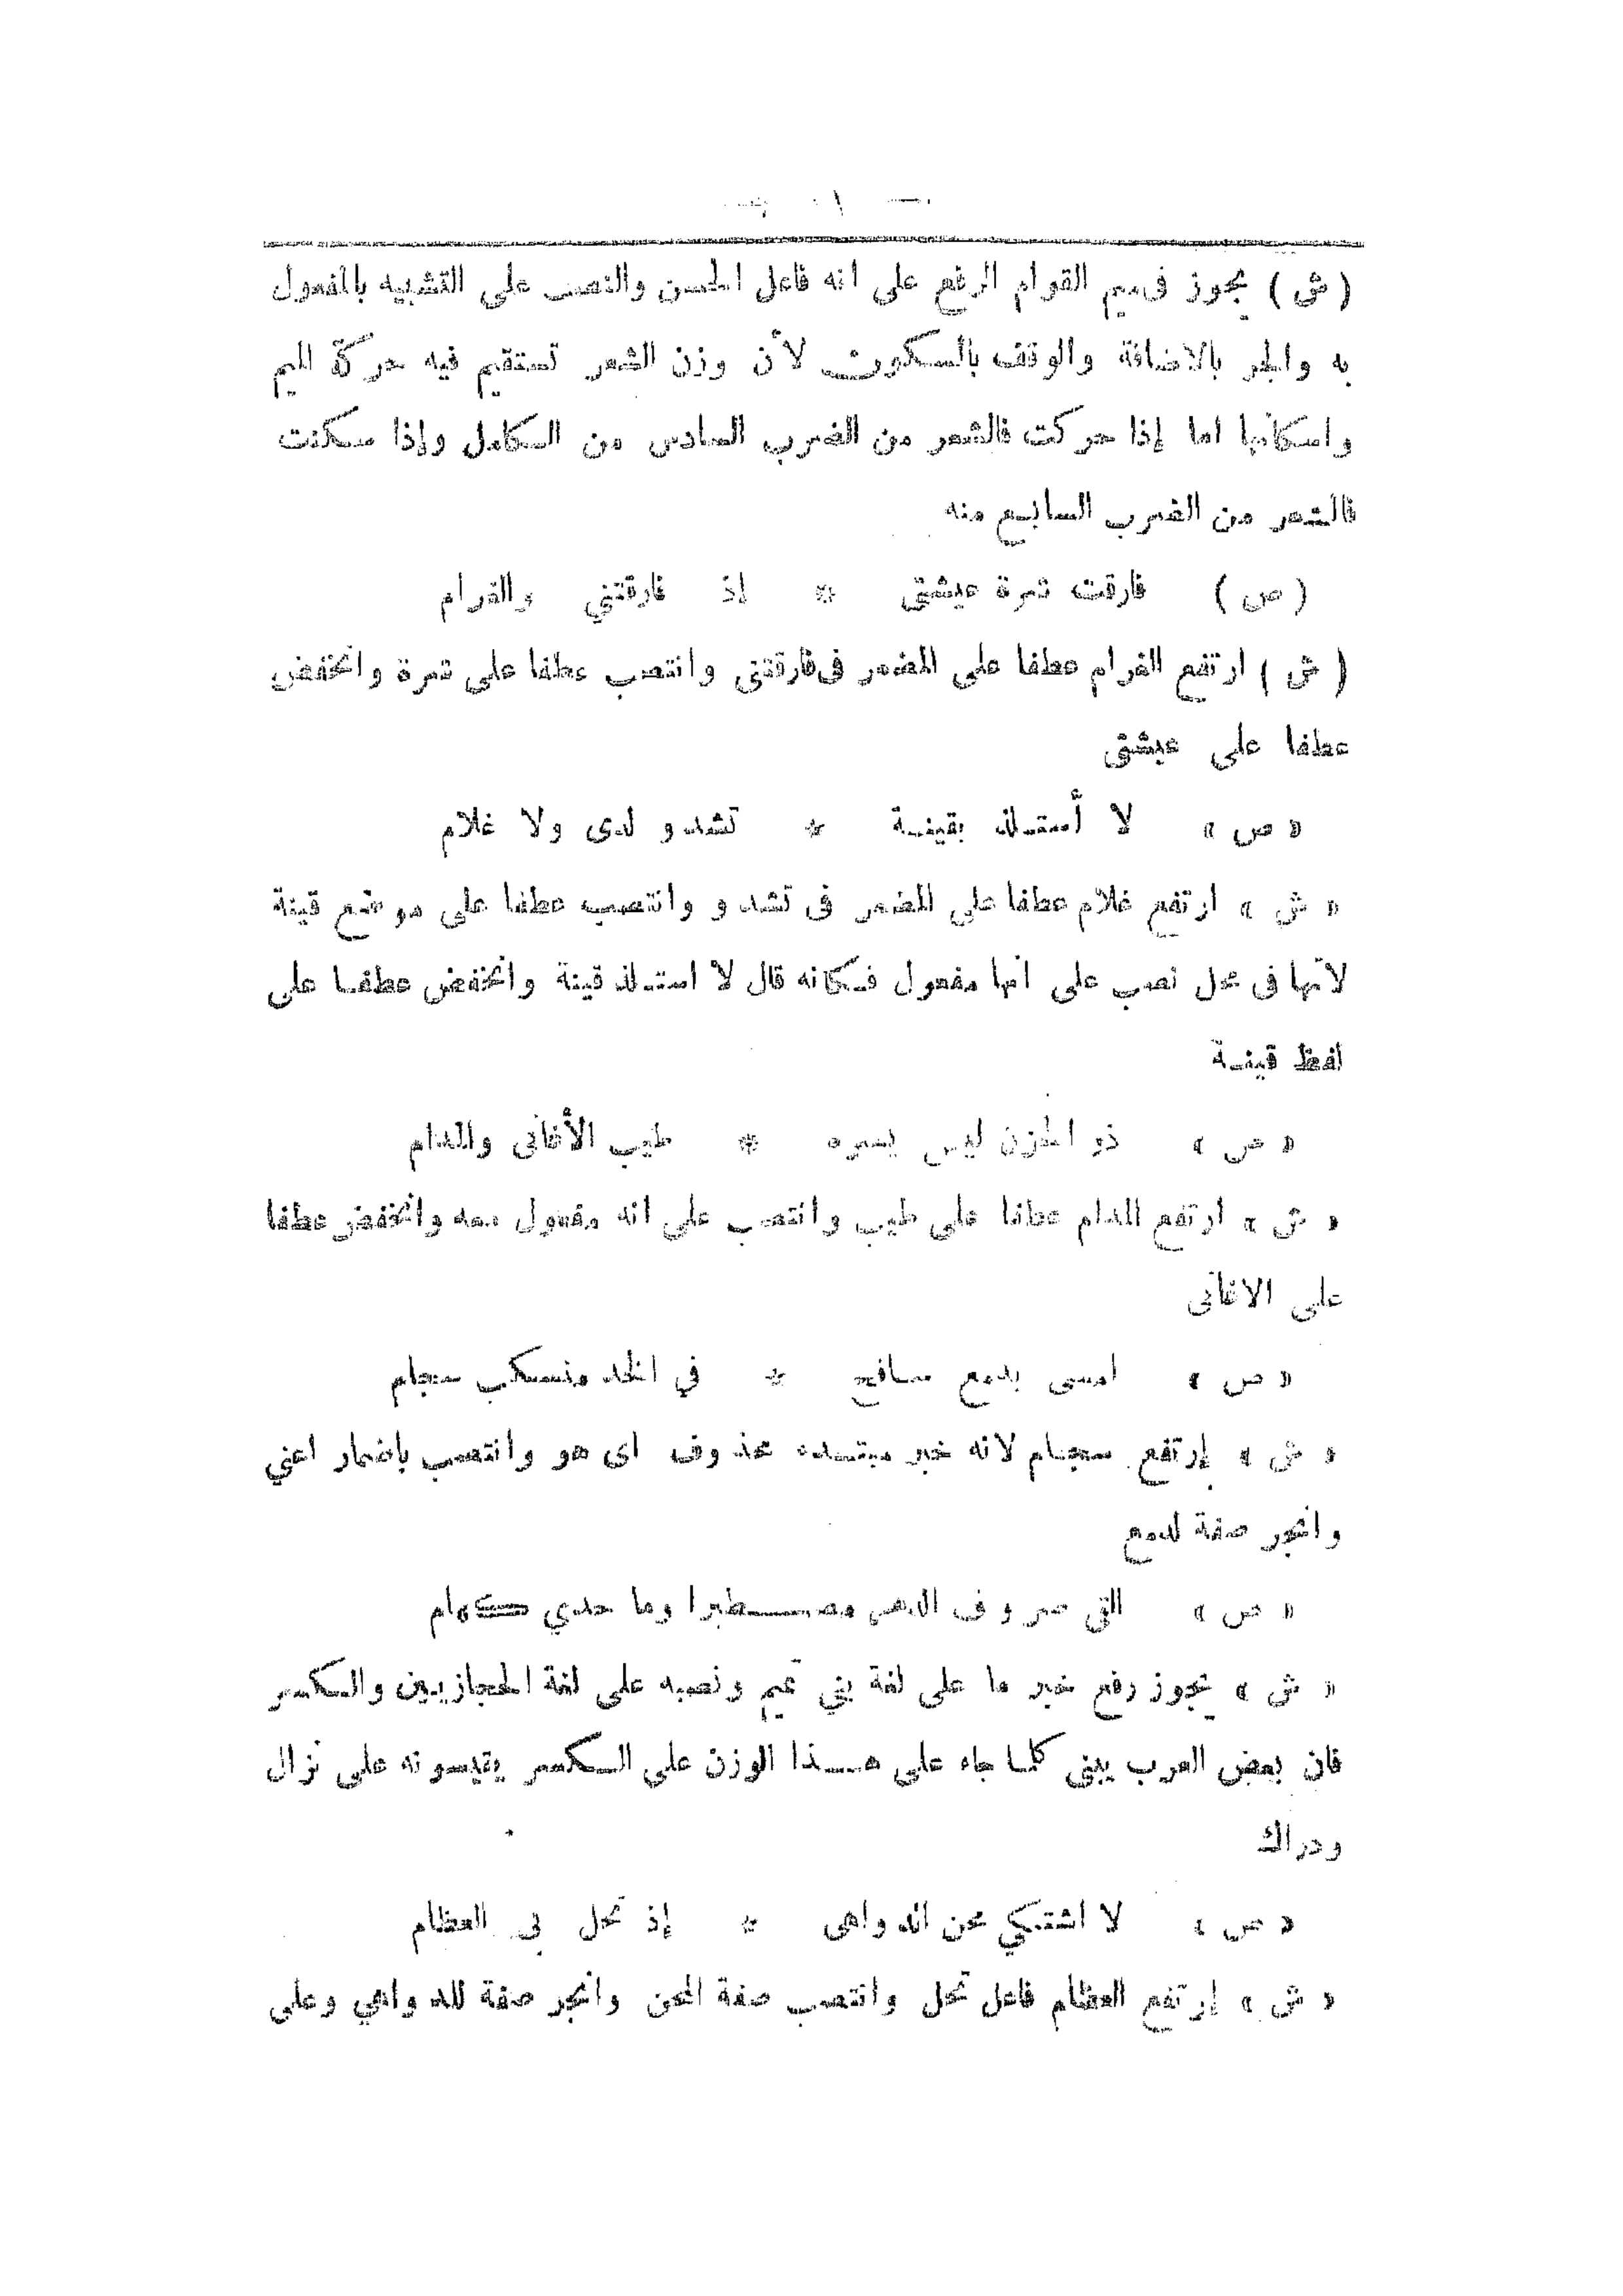 (ش) يجوز في ميم القوام الرفع على انه فاعل الحسن والنصب على التشبيه بالمفعول
به والجر بالاضافة والوقف بالسكون لأن وزن الشعر تستقيم فيه حركة الميم
واسكانها اما إذا حركت فالشعر من الضرب السادس من الكامل وإذا سكنت
فالشعر من الضرب السابع منه
(ص) فارقت تمرة عيشتى * إذ فارقتني والغرام
(ش) ارتفع الغرام عطفا على المضمر فى فارقتنى وانتصب عطفا على تمرة وانخفض
عطفا على عيشتى
« ص » لا أستلذ بقينة * تشدو لدى ولا غلام
« ش » ارتفع غلام عطفا على المضمر فى تشدو وانتصب عطفا على موضع قينة
لانها فى محل نصب على انها مفعول فكانه قال لا استلذ قينة وانخفض عطفا على
لفظ قينة
« ص » ذو الحزن ليس يسره * طيب الأغانى والمدام
« ش » ارتفع المدام عطفا على طيب وانتصب على انه مفعول معه وانخفض عطفا
على الاغانى
« ص » امسى بدمع سافح * في الخد منسكب سجام
« ش » إرتفع سجام لانه خبر مبتدء محذوف اى هو وانتصب باضمار اعني
وانجر صفة لدمع
« ص » القى صروف الدهر مصطبرا وما حدي كهام
« ش » يجوز رفع خبر ما على لغة بني تميم ونصبه على لغة الحجازيين والكسر
فان بعض العرب يبنى كلما جاء على هذا الوزن على الكسر يقيسونه على نزال
ودراك
« ص » لا اشتكي محن الدواهى * إذ تحل فى العظام
« ش » إرتفع العظام فاعل تحل وانتصب صفة المحن وانجر صفة للدواهي وعلى